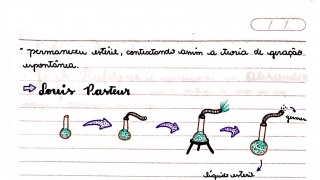 - permaneceu estéril, contestando assim a teoria de geração
espontânea.
⇨ Louis Pasteur
germes
líquido estéril